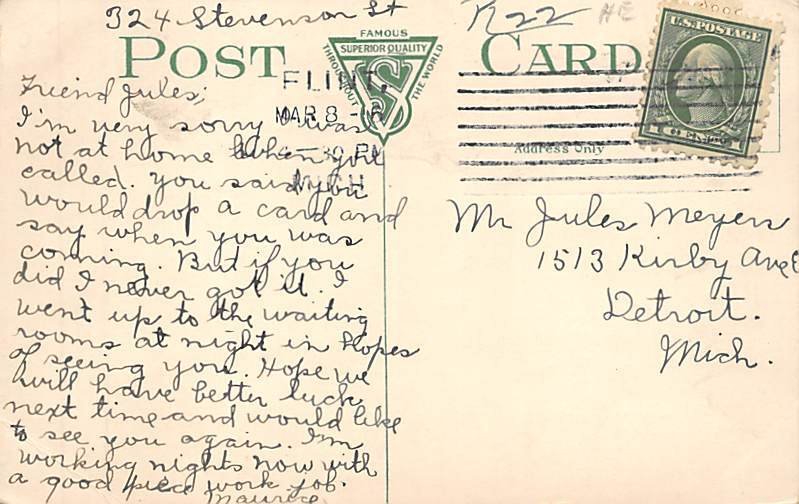 324 Stevenson St
R22
HE
POST CARD
FAMOUS
SUPERIOR QUALITY
THROUGHOUT THE WORLD
S
FLINT,
MAR 8
30 PM
MICH
U.S. POSTAGE
Address Only
Friend Jules;
I'm very sorry I was
not at home when you
called. You said you
would drop a card and
say when you was
coming. But if you
did I never got it. I
went up to the waiting
rooms at night in Hopes
of seeing you. Hope we
will have better luck
next time and would like
to see you again. I'm
working nights now with
a good piece work job.
Maurice
Mr Jules Meyers
1513 Kirby Ave E
Detroit.
Mich.